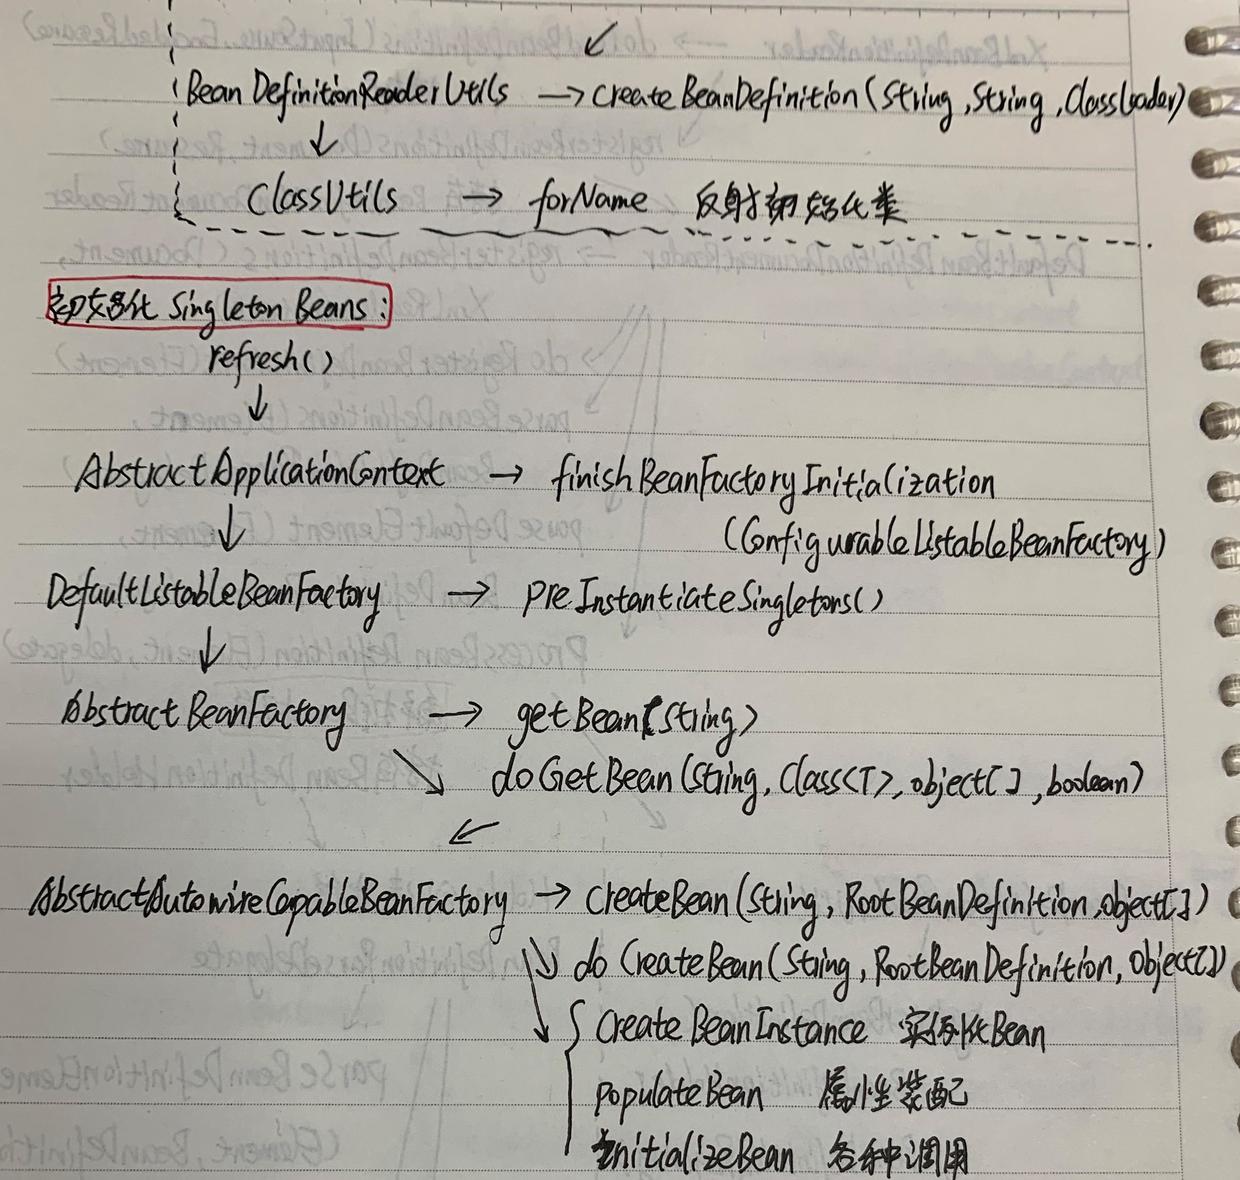 BeanDefinitionReaderUtils → createBeanDefinition(String,String,ClassLoader)
↓
ClassUtils → forName 反射初始化类
初始化 Singleton Beans:
refresh()
↓
AbstractApplicationContext → finishBeanFactoryInitialization
(ConfigurableListableBeanFactory)
↓
DefaultListableBeanFactory → preInstantiateSingletons()
↓
AbstractBeanFactory → getBean(String)
doGetBean(String, Class<T>, object[], boolean)
AbstractAutowireCapableBeanFactory → createBean(String, RootBeanDefinition, object[])
doCreateBean(String, RootBeanDefinition, object[])
createBeanInstance 实例化Bean
populateBean 属性装配
initializeBean 各种调用